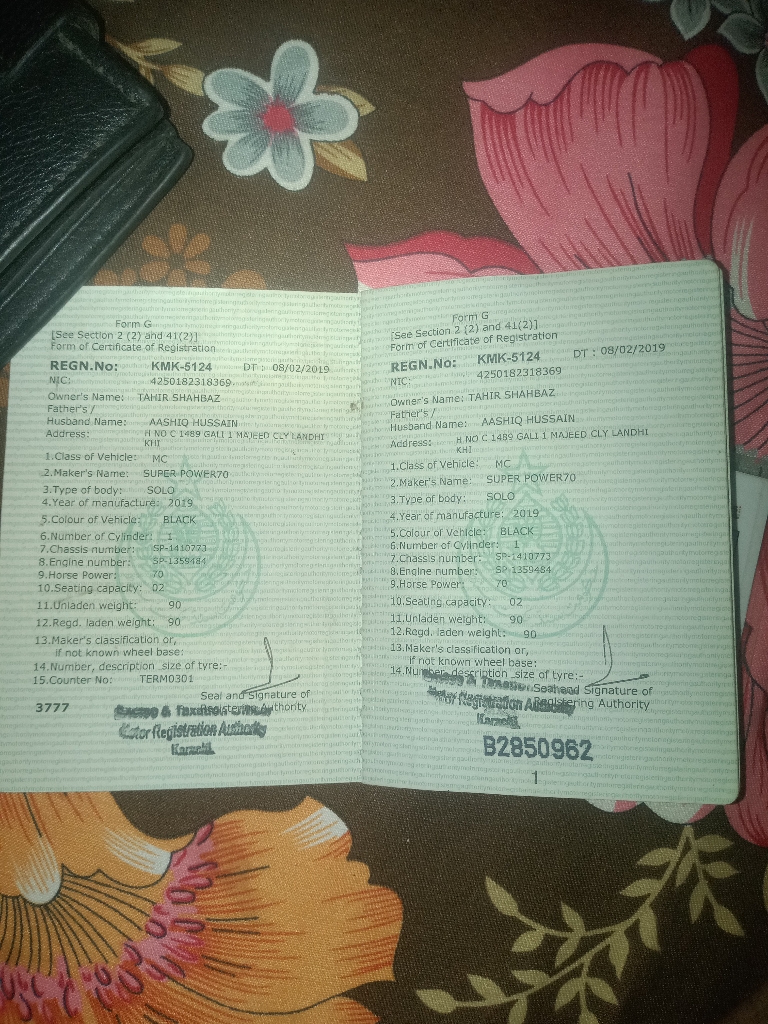 Form G
[See Section 2 (2) and 41(2)]
Form of Certificate of Registration
REGN.No: KMK-5124 DT : 08/02/2019
NIC: 4250182318369
Owner's Name: TAHIR SHAHBAZ
Father's /
Husband Name: AASHIQ HUSSAIN
Address: H NO C 1489 GALI 1 MAJEED CLY LANDHI
KHI
1.Class of Vehicle: MC
2.Maker's Name: SUPER POWER70
3.Type of body: SOLO
4.Year of manufacture: 2019
5.Colour of Vehicle: BLACK
6.Number of Cylinder: 1
7.Chassis number: SP-1410773
8.Engine number: SP-1359484
9.Horse Power: 70
10.Seating capacity: 02
11.Unladen weight: 90
12.Regd. laden weight: 90
13.Maker's classification or,
if not known wheel base:
14.Number, description size of tyre:-
15.Counter No: TERM0301
Seal and Signature of
Registering Authority
3777
Excise & Taxation
Motor Registration Authority
Karachi
Form G
[See Section 2 (2) and 41(2)]
Form of Certificate of Registration
REGN.No: KMK-5124 DT : 08/02/2019
NIC: 4250182318369
Owner's Name: TAHIR SHAHBAZ
Father's /
Husband Name: AASHIQ HUSSAIN
Address: H NO C 1489 GALI 1 MAJEED CLY LANDHI
KHI
1.Class of Vehicle: MC
2.Maker's Name: SUPER POWER70
3.Type of body: SOLO
4.Year of manufacture: 2019
5.Colour of Vehicle: BLACK
6.Number of Cylinder: 1
7.Chassis number: SP-1410773
8.Engine number: SP-1359484
9.Horse Power: 70
10.Seating capacity: 02
11.Unladen weight: 90
12.Regd. laden weight: 90
13.Maker's classification or,
if not known wheel base:
14.Number, description size of tyre:-
Seal and Signature of
Registering Authority
Excise & Taxation
Motor Registration Authority
Karachi
B2850962
1